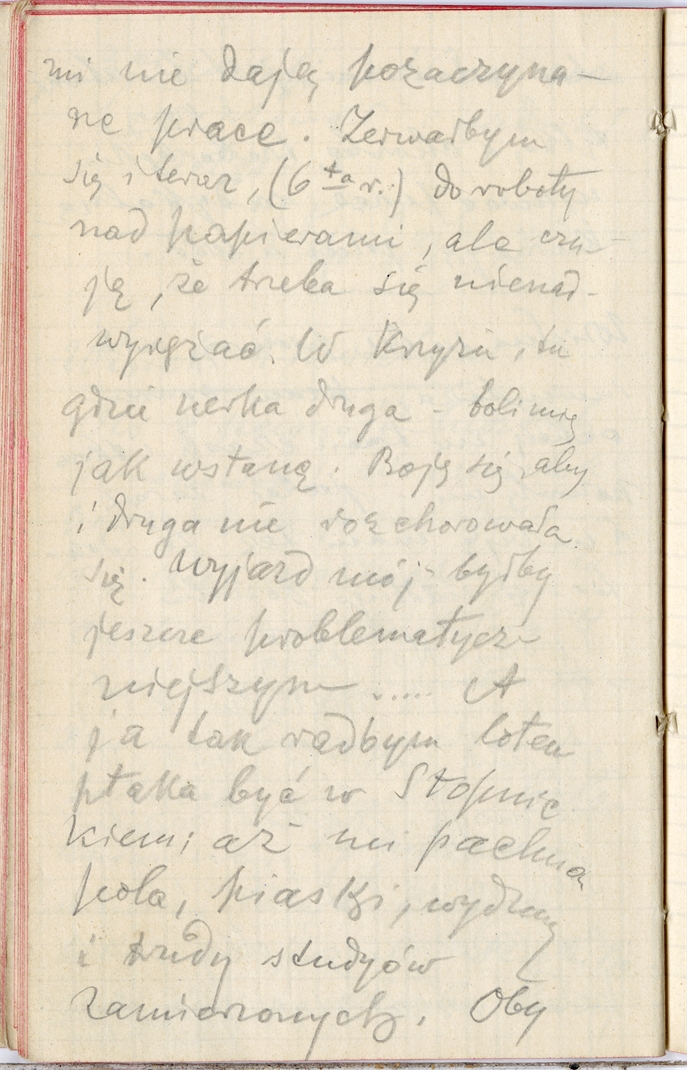 mi nie dają pozaczyna-
ne prace. Zerwałbym
się i teraz, (6 ta r.) do roboty
nad papierami, ale czu-
ję, że trzeba się nienad-
wyrężać. W Krzyżu, tu
gdzie nerka druga - boli mię
jak wstanę. Boję się aby
i druga nie rozchorowała
się. Wyjazd mój byłby
jeszcze problematycz-
niejszym ..... A
ja tak radbym lotem
ptaka być w Stopnic
kiem; aż mi pachną
pola, piaski, wydmy
i trudy studyów
zamierzonych. Oby